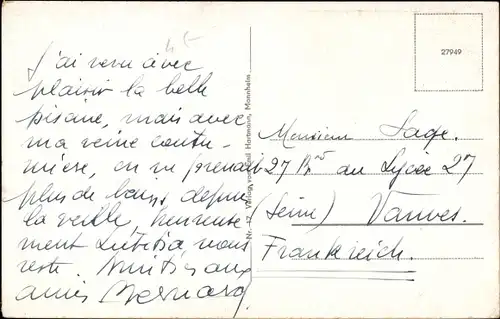 J'ai revu avec
plaisir la belle
piscine, mais avec
ma veine coutu-
mière, on ne prenait
plus de bains depuis
la veille, heureuse-
ment vous
reste. Amitiés aux
amis Bernard
27949
Nr. 17 Verlag Emil Hartmann, Mannheim
Monsieur Sage.
27 Bis au Lycée 27
(Seine) Vanves.
Frankreich.